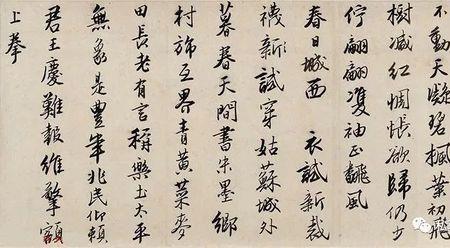 不動天凝碧楓葉初飛
樹減紅惆悵欲歸仍少
佇翩翩雙袖正飜風
春日城西 衣試新裁
襪新試穿姑蘇城外
暮春天間書朱墨鄉
村互界青黃菜麥
田長老有言稱樂土太平
無象是豐年兆民仰賴
君王慶難報維擎額
上拳